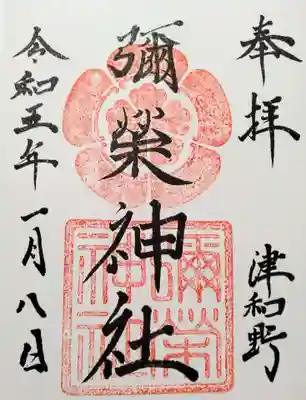 奉拝
津和野
彌榮神社
彌榮
神社
令和五年一月八日